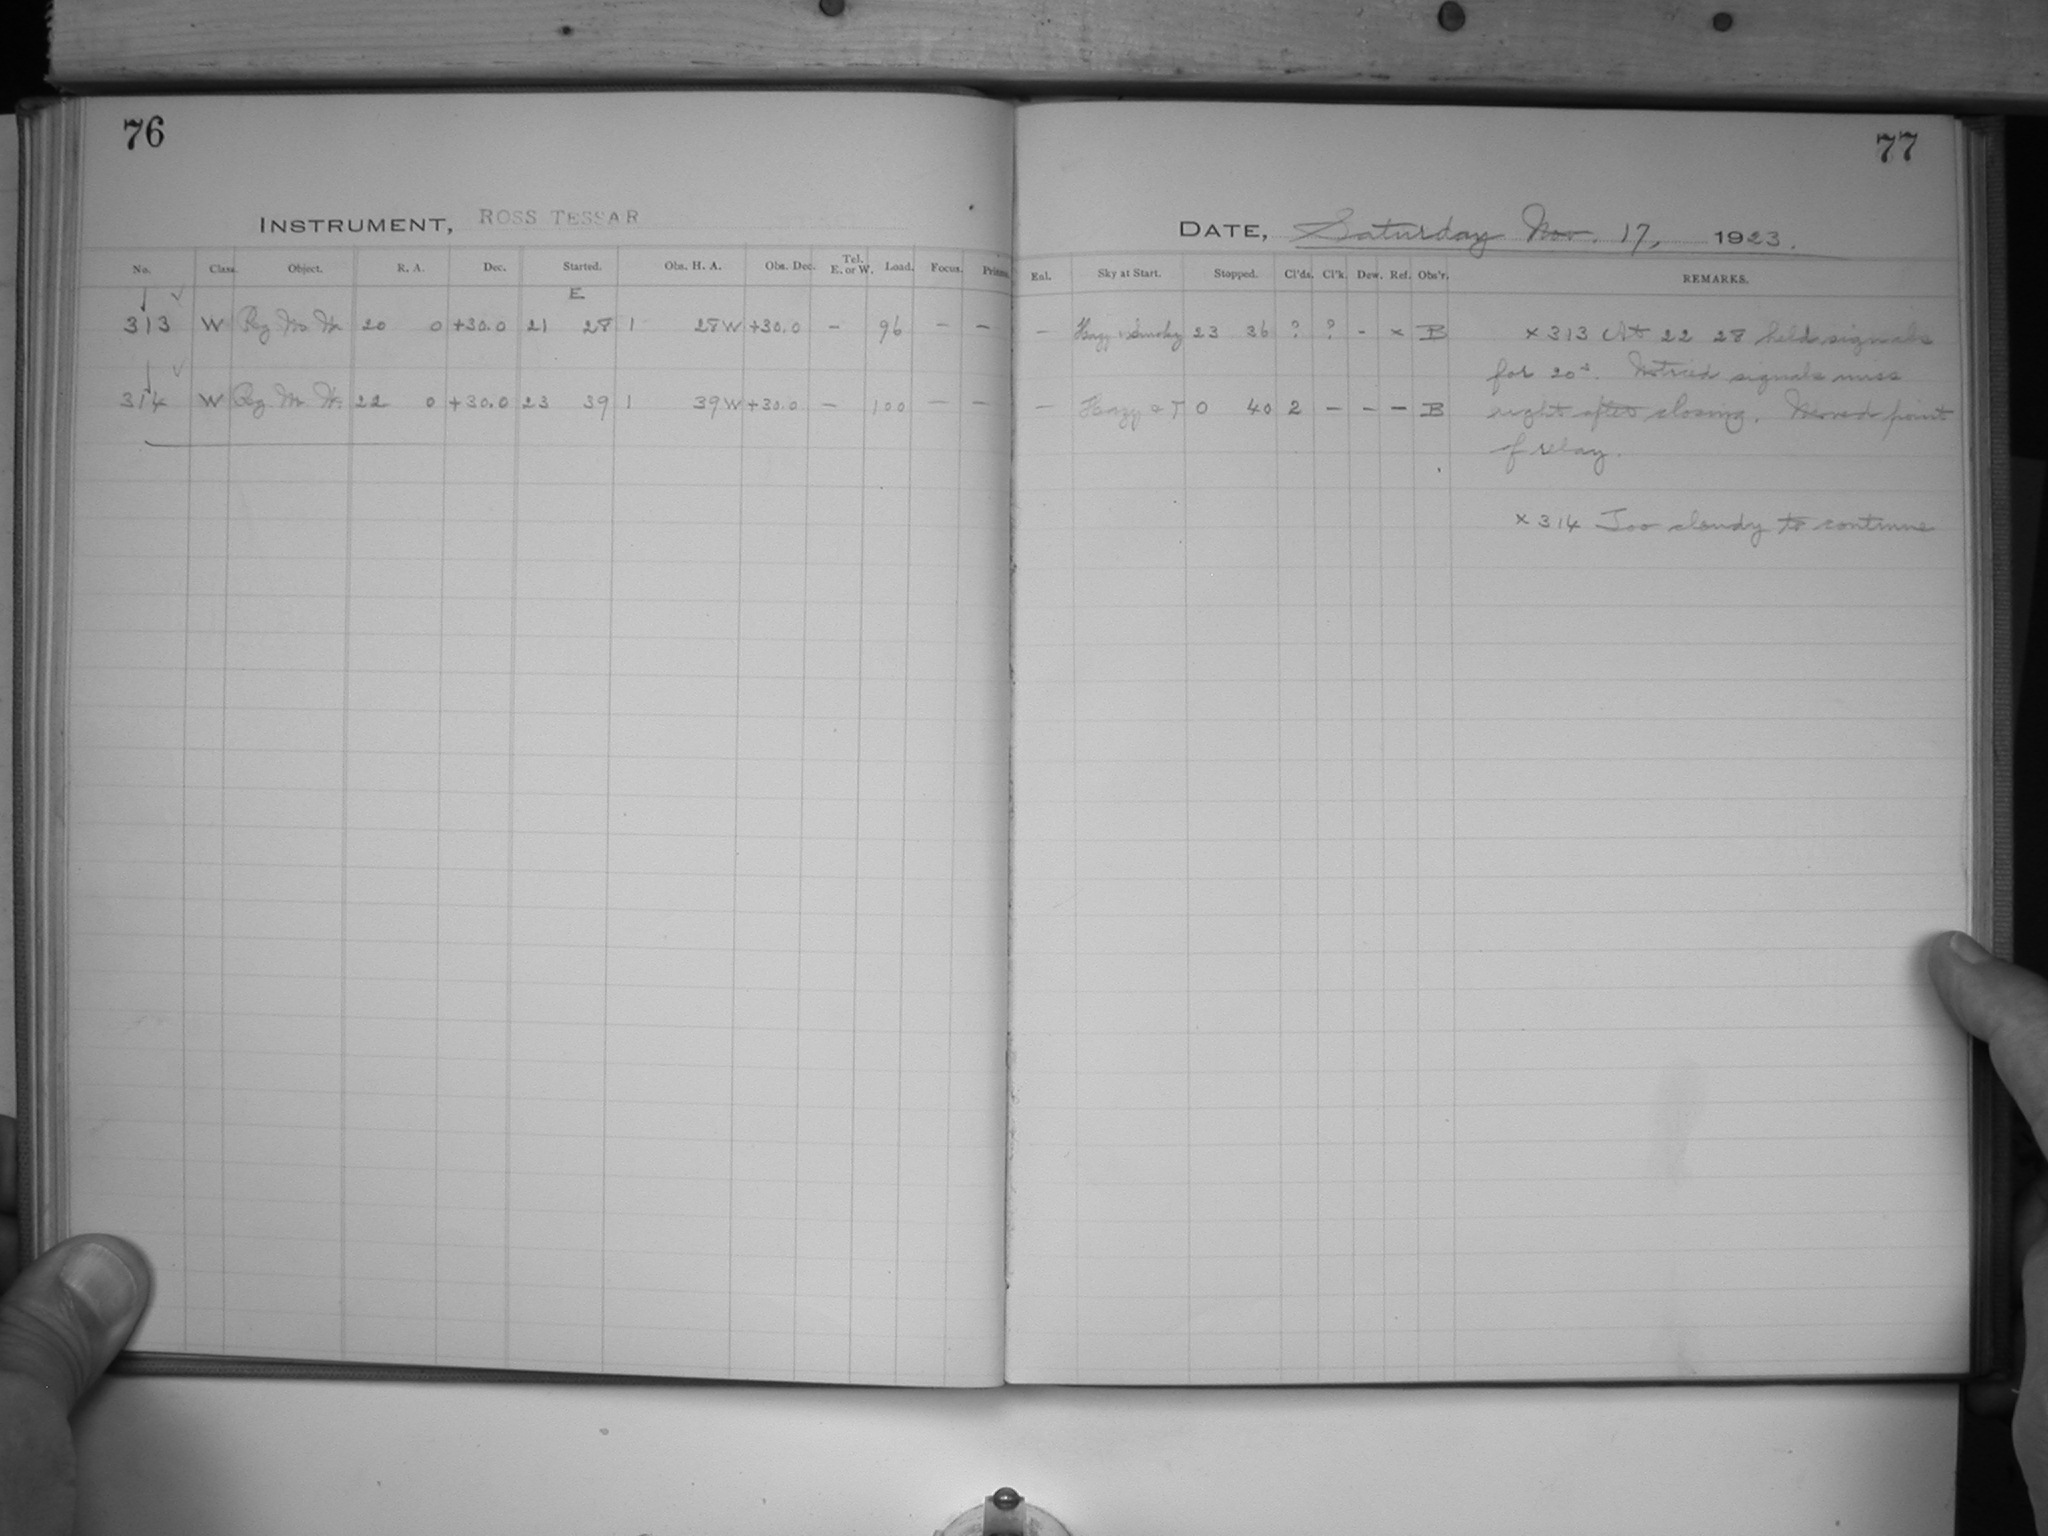 76
77
INSTRUMENT, ROSS TESSAR
DATE, Saturday Nov. 17, 1923.
No. Class. Object. R. A. Dec. Started. Obs. H. A. Obs. Dec. Tel. E. or W. Load. Focus. Prisms. Enl. Sky at Start. Stopped. Cl'ds. Cl'k. Dew. Ref. Obs'r. REMARKS.
E
313 W Reg M. W. 20 0 +30.0 21 28 1 28 W +30.0 – 96 – – – Hazy & Smoky 23 36 ? ? - x B x 313 At 22 28 held signals
for 20s. Noticed signals miss
314 W Reg M. W. 22 0 +30.0 23 39 1 39 W +30.0 – 100 – – – Hazy 0 40 2 – – – B right after closing. Moved point
of relay.
x 314 Too cloudy to continue